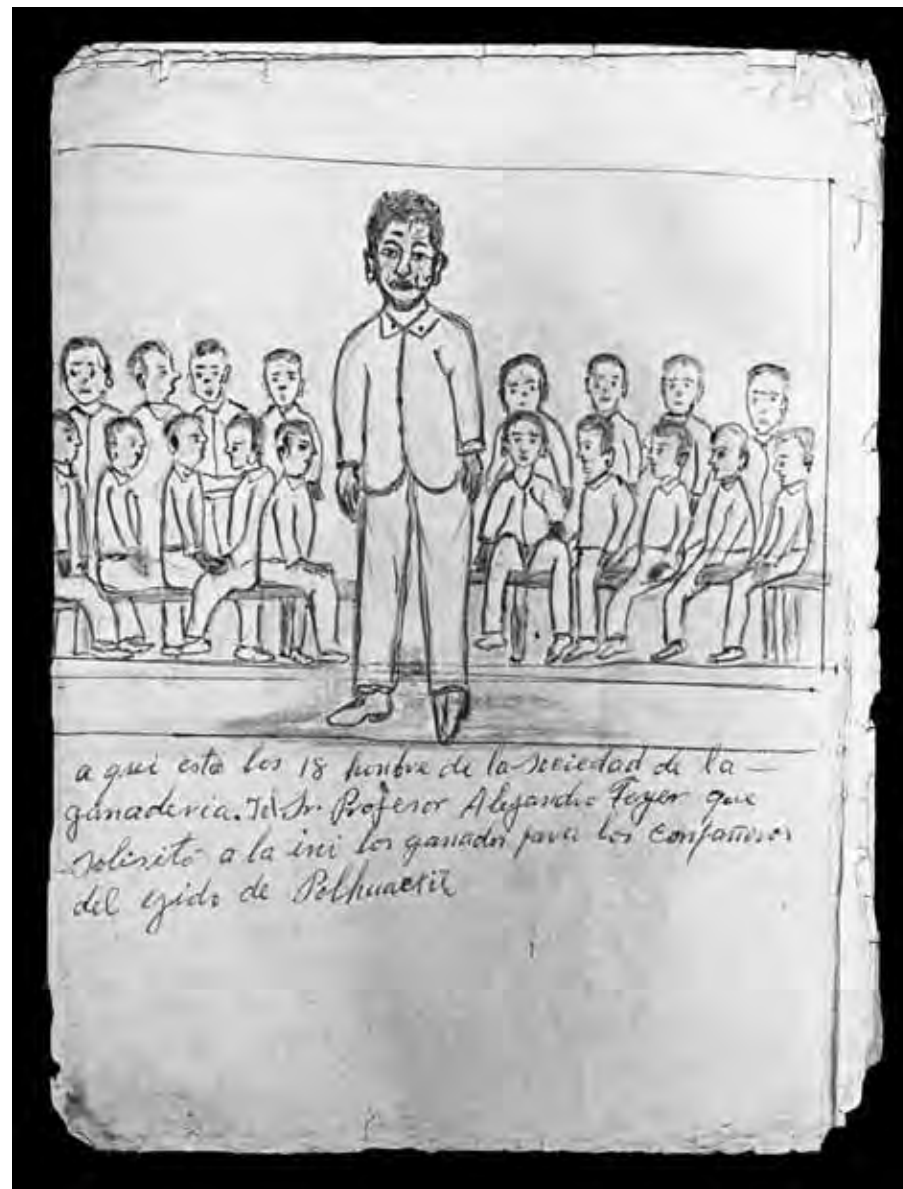 a qui esta los 18 honbre de la sociedad de la
ganaderia. Sr. Profesor Alejandro que
solisitó a la ini los ganados para los conpañeros
del egido de Polhuactil